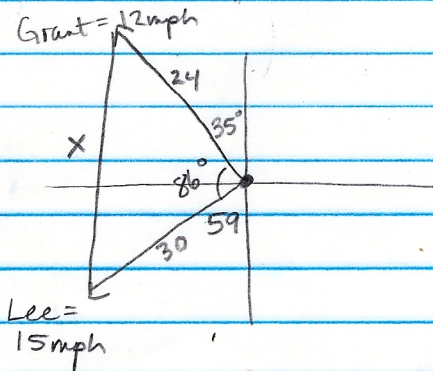 Grant = 12mph
24
35°
X
86°
59
30
Lee =
15mph